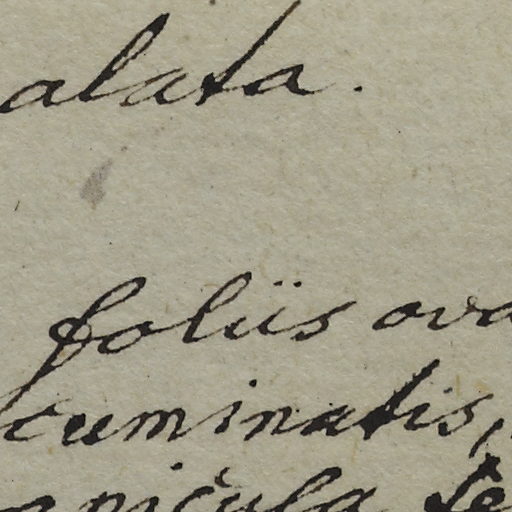 alata.
foliis ova
cuminatis,
anicula te